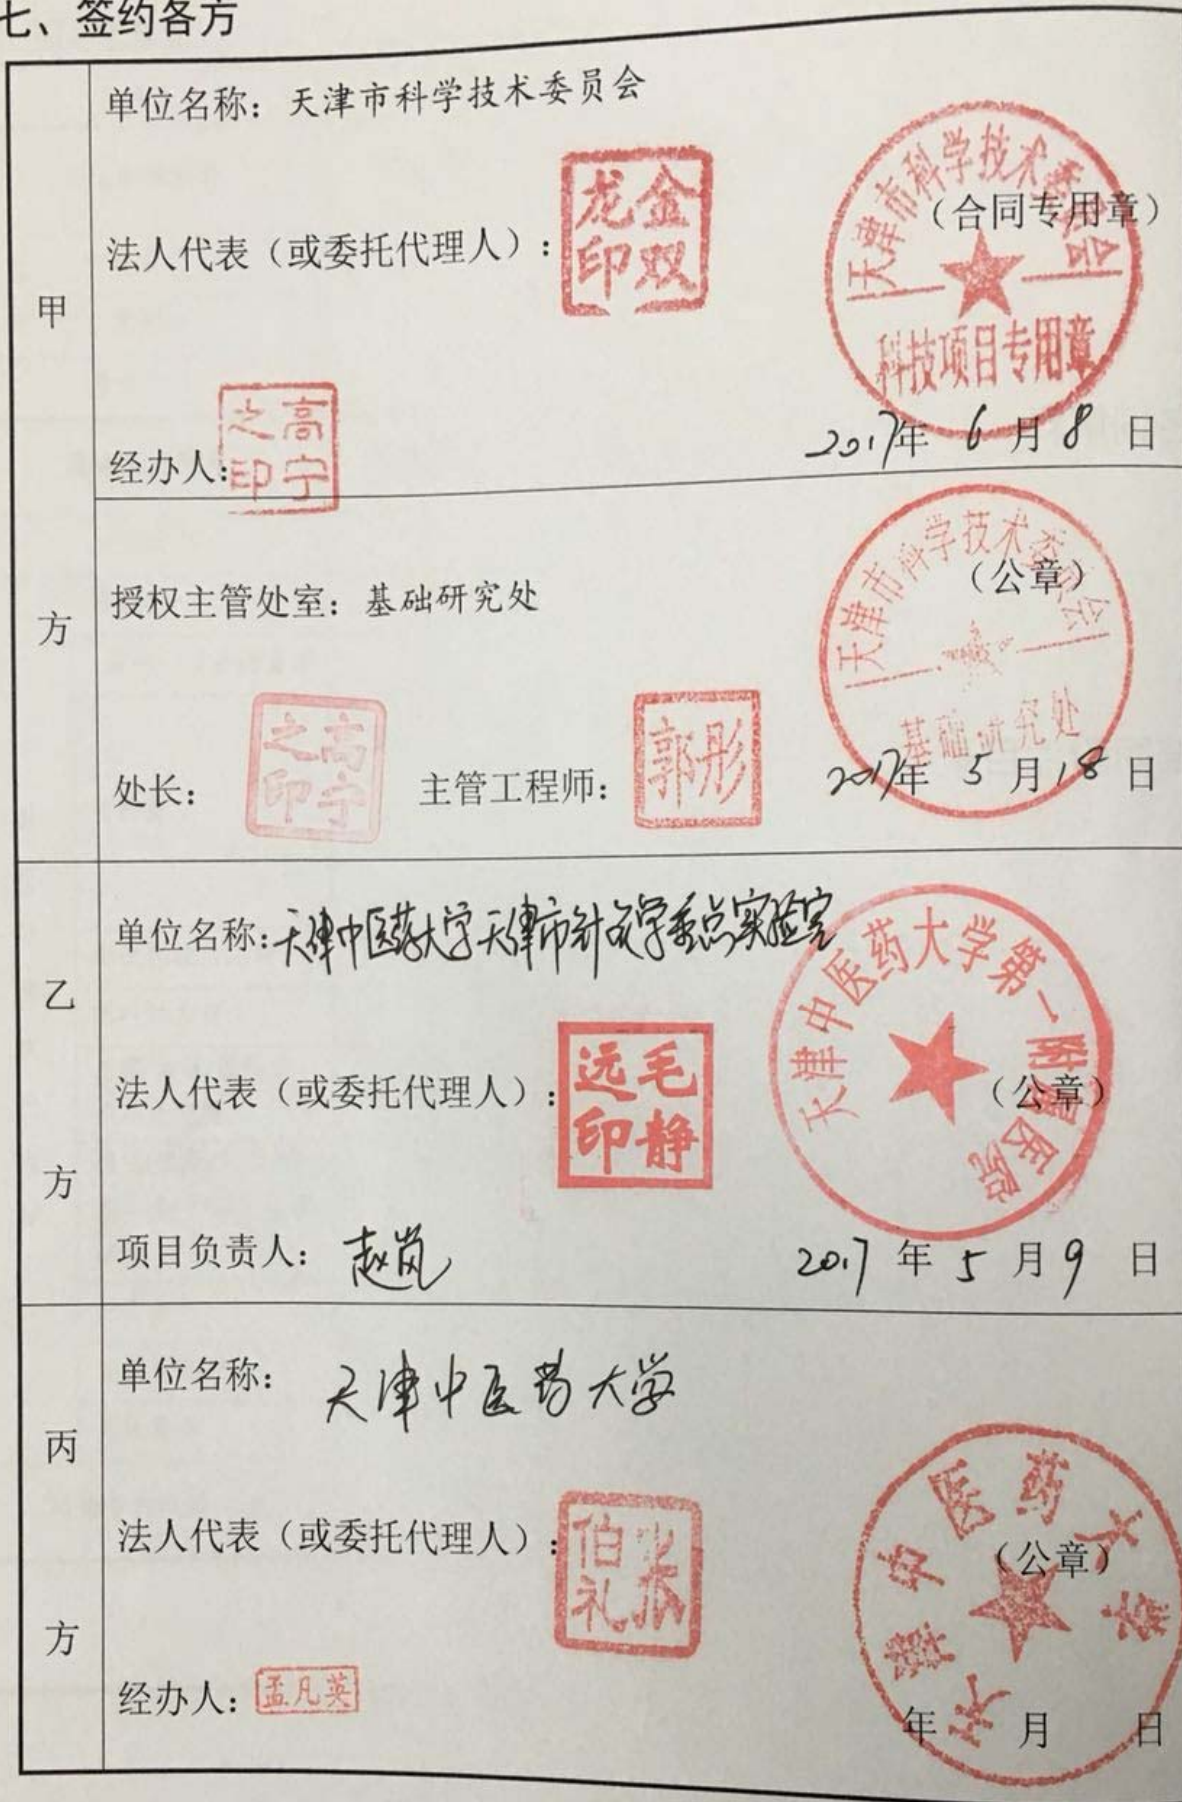 七、签约各方
甲方
单位名称：天津市科学技术委员会
法人代表（或委托代理人）：
金双龙印
（合同专用章）
天津市科学技术委员会
科技项目专用章
经办人：
高宁之印
2017年 6 月 8 日
授权主管处室：基础研究处
（公章）
天津市科学技术委员会
基础研究处
处长：
高宁之印
主管工程师：
郭彤
2017年 5 月 18 日
乙方
单位名称：天津中医药大学天津市针灸学重点实验室
法人代表（或委托代理人）：
毛静远印
（公章）
天津中医药大学第一附属医院
项目负责人：赵岚
2017 年 5 月 9 日
丙方
单位名称：天津中医药大学
法人代表（或委托代理人）：
张伯礼
（公章）
天津中医药大学
经办人：孟凡英
年 月 日